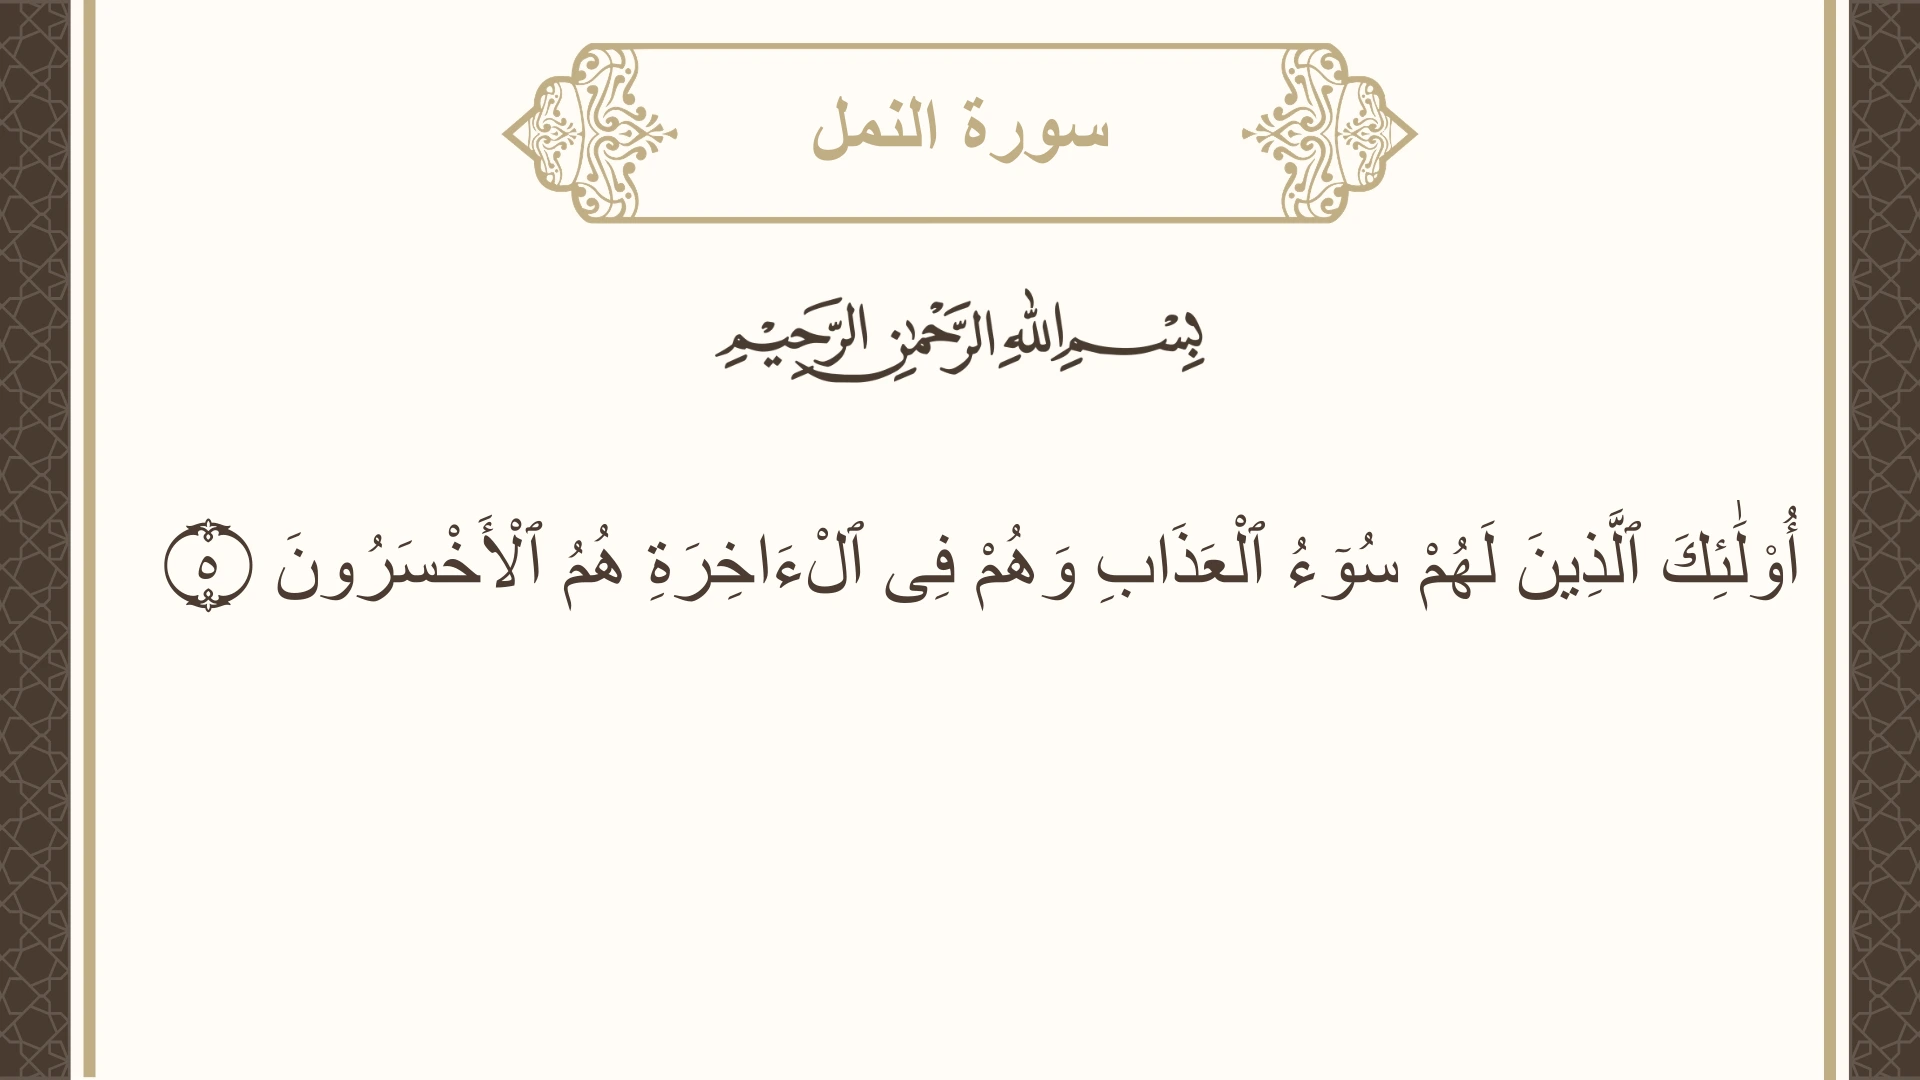 سورة النمل
بِسْمِ اللهِ الرَّحْمٰنِ الرَّحِيْمِ
أُوْلَٰٓئِكَ ٱلَّذِينَ لَهُمْ سُوٓءُ ٱلْعَذَابِ وَهُمْ فِى ٱلْءَاخِرَةِ هُمُ ٱلْأَخْسَرُونَ ٥